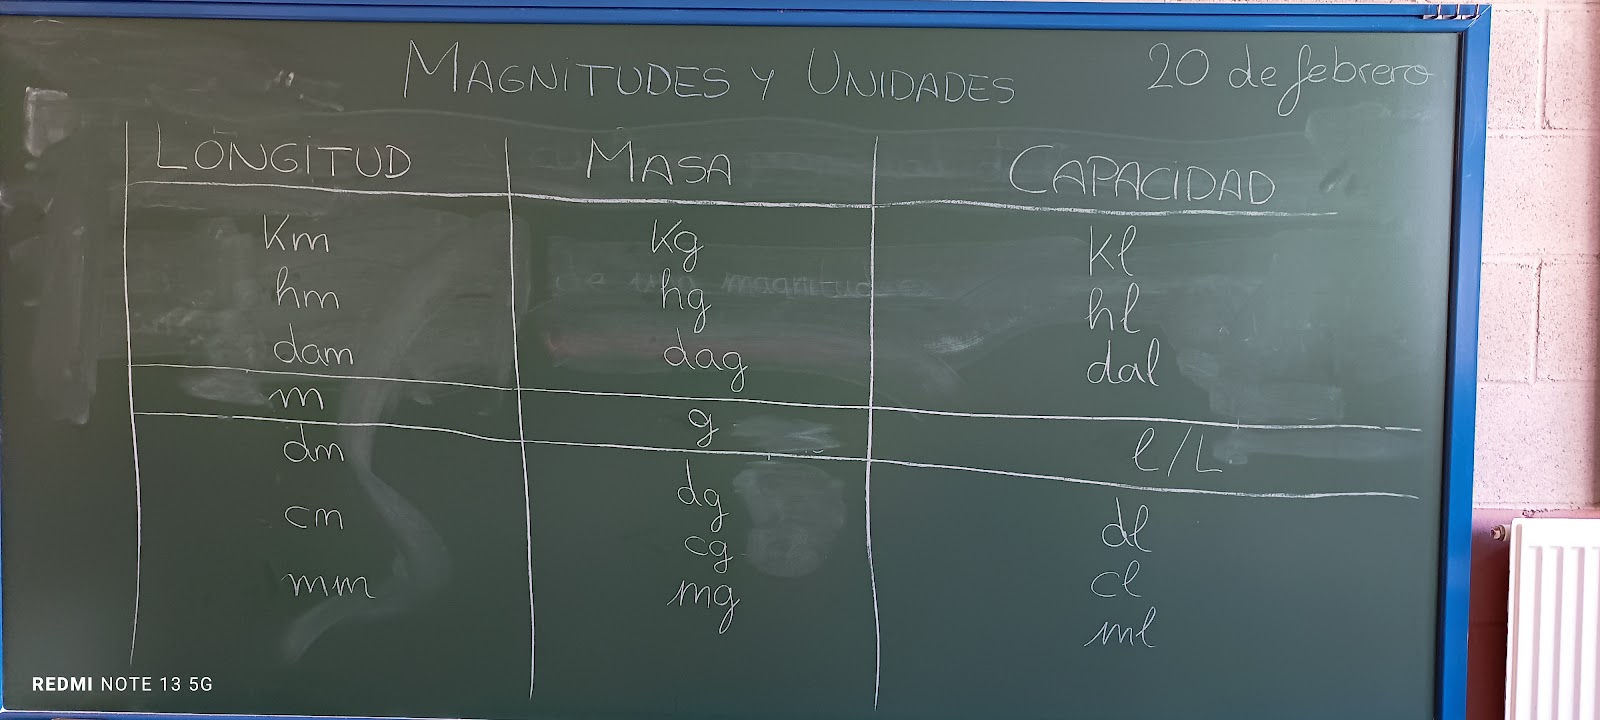 MAGNITUDES Y UNIDADES 20 de febrero
LONGITUD MASA CAPACIDAD
Km Kg Kl
hm hg hl
dam dag dal
m g l/L
dm dg dl
cm cg cl
mm mg ml
de una magnitud
REDMI NOTE 13 5G